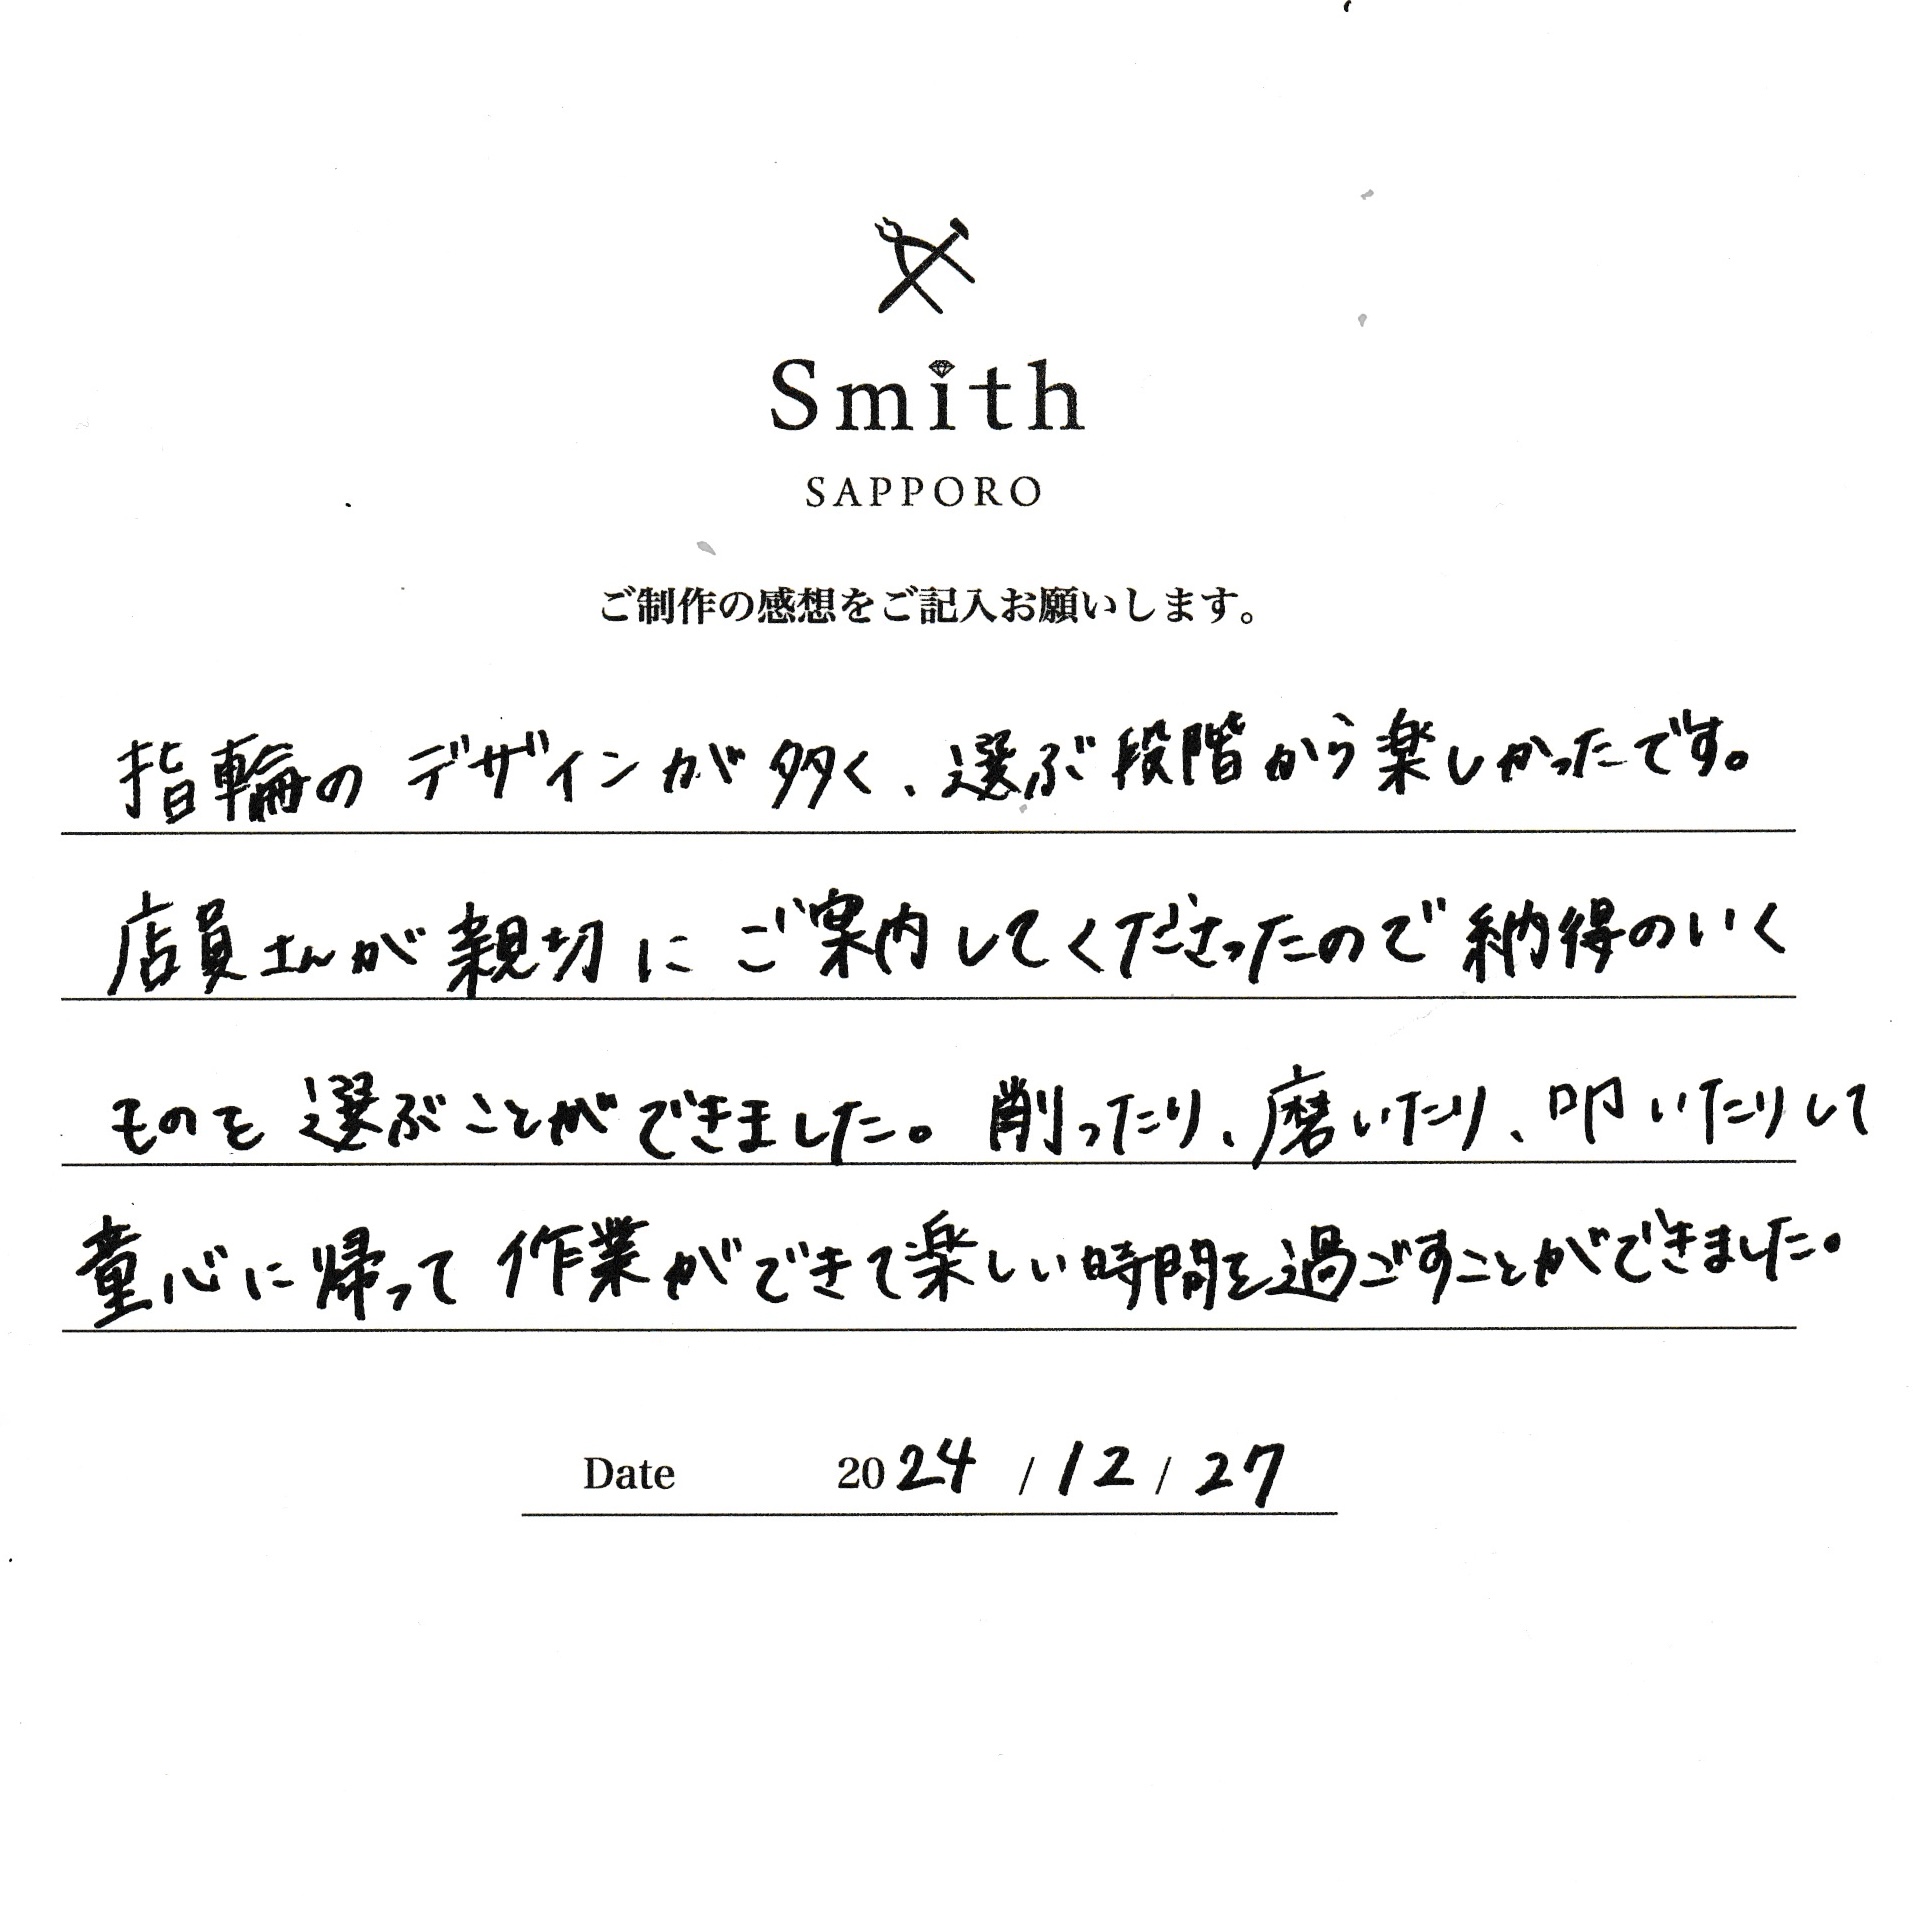 Smith
SAPPORO
ご制作の感想をご記入お願いします。
指輪のデザインが多く、選ぶ段階から楽しかったです。
店員さんが親切にご案内してくださったので納得のいく
ものを選ぶことができました。削ったり、磨いたり、叩いたりして
童心に帰って作業ができて楽しい時間を過ごすことができました。
Date 2024/12/27